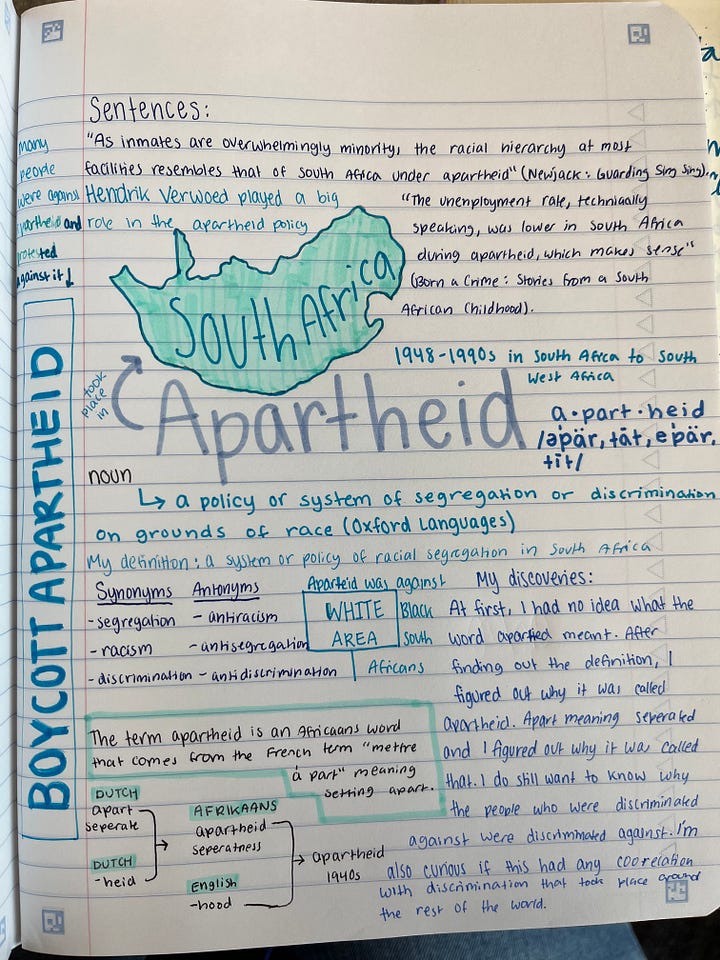 Sentences:
"As inmates are overwhelmingly minority, the racial hierarchy at most
facilities resembles that of South Africa under apartheid" (Newjack: Guarding Sing Sing).
Hendrik Verwoed played a big
role in the apartheid policy
many
people
were against
apartheid and
protested
against it ↓
"The unemployment rate, technically
speaking, was lower in South Africa
during apartheid, which makes sense"
(Born a Crime: Stories from a South
African Childhood).
South Africa
1948-1990s in South Africa to South
West Africa
took
place
in
Apartheid
a·part·heid
/əpär,tāt,epär,
tīt/
BOYCOTT APARTHEID
noun
↳ a policy or system of segregation or discrimination
on grounds of race (Oxford Languages)
My definition: a system or policy of racial segregation in South Africa
Synonyms
-segregation
-racism
-discrimination
Antonyms
-antiracism
-antisegregation
-antidiscrimination
Aparteid was against
Black
South
Africans
WHITE
AREA
My discoveries:
At first, I had no idea what the
word apartied meant. After
finding out the definition, I
figured out why it was called
apartheid. Apart meaning seperated
and I figured out why it was called
that. I do still want to know why
the people who were discriminated
against were discriminated against. I'm
also curious if this had any coorelation
with discrimination that took place around
the rest of the world.
The term apartheid is an Africaans word
that comes from the French term "mettre
à part" meaning
setting apart.
DUTCH
apart
seperate
DUTCH
-heid
AFRIKAANS
apartheid
seperatness
English
-hood
apartheid
1940s